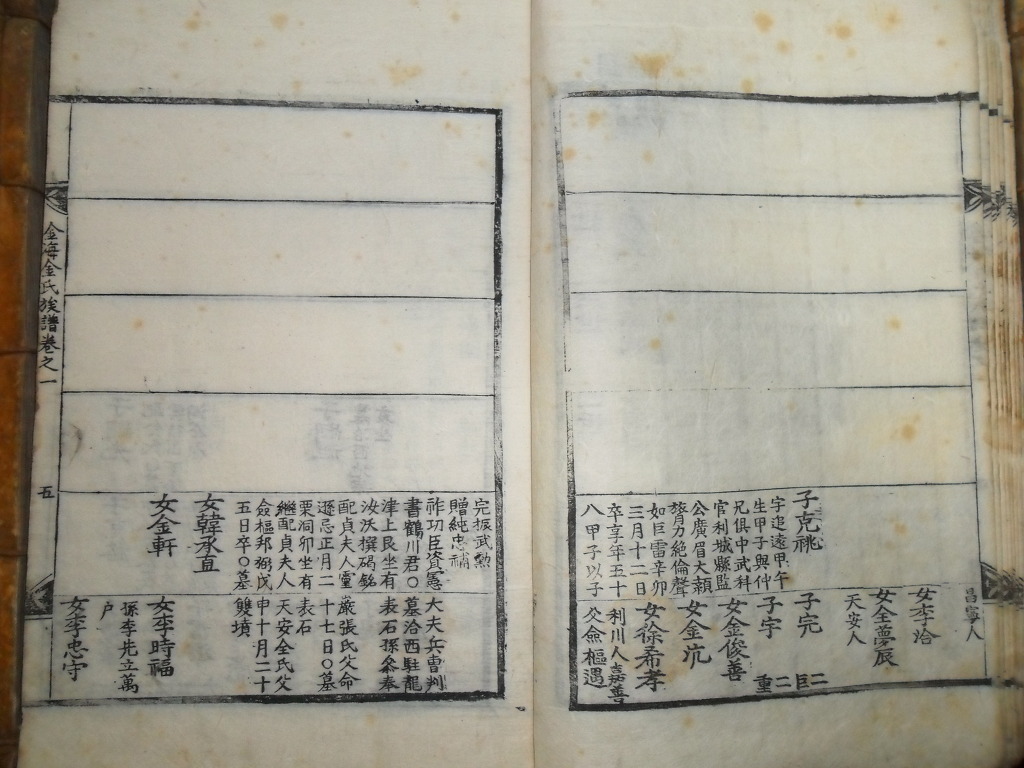 昌寧人
女李冾
女全夢辰
天安人
子克祧
字追遠甲午
生甲子與仲
兄俱中武科
官利城縣監
公廣眉大顙
膂力絶倫聲
如巨雷辛卯
三月十二日
卒享年五十
八甲子以子
子完
二巨
子宇
二重
女金俊善
女金沆
女徐希孝
利川人嘉善
父僉樞遇
完振武勲
贈純忠補
祚功臣資憲大夫兵曹判
書鶴川君○墓洽西駐龍
津上艮坐有表石孫奉
汝沃撰碣銘
配貞夫人靈巖張氏父命
遜忌正月二十七日○墓
栗洞卯坐有表石
継配貞夫人天安全氏父
僉樞邦弼戊申十月二十
五日卒○墓雙墳
女韓承宜
女金軒
女李時福
孫李先立萬
户
女李忠守
金海金氏族譜卷之一
五